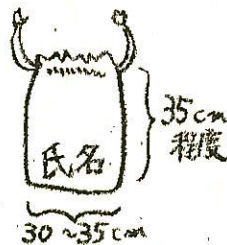 35cm
程度
氏名
30~35cm